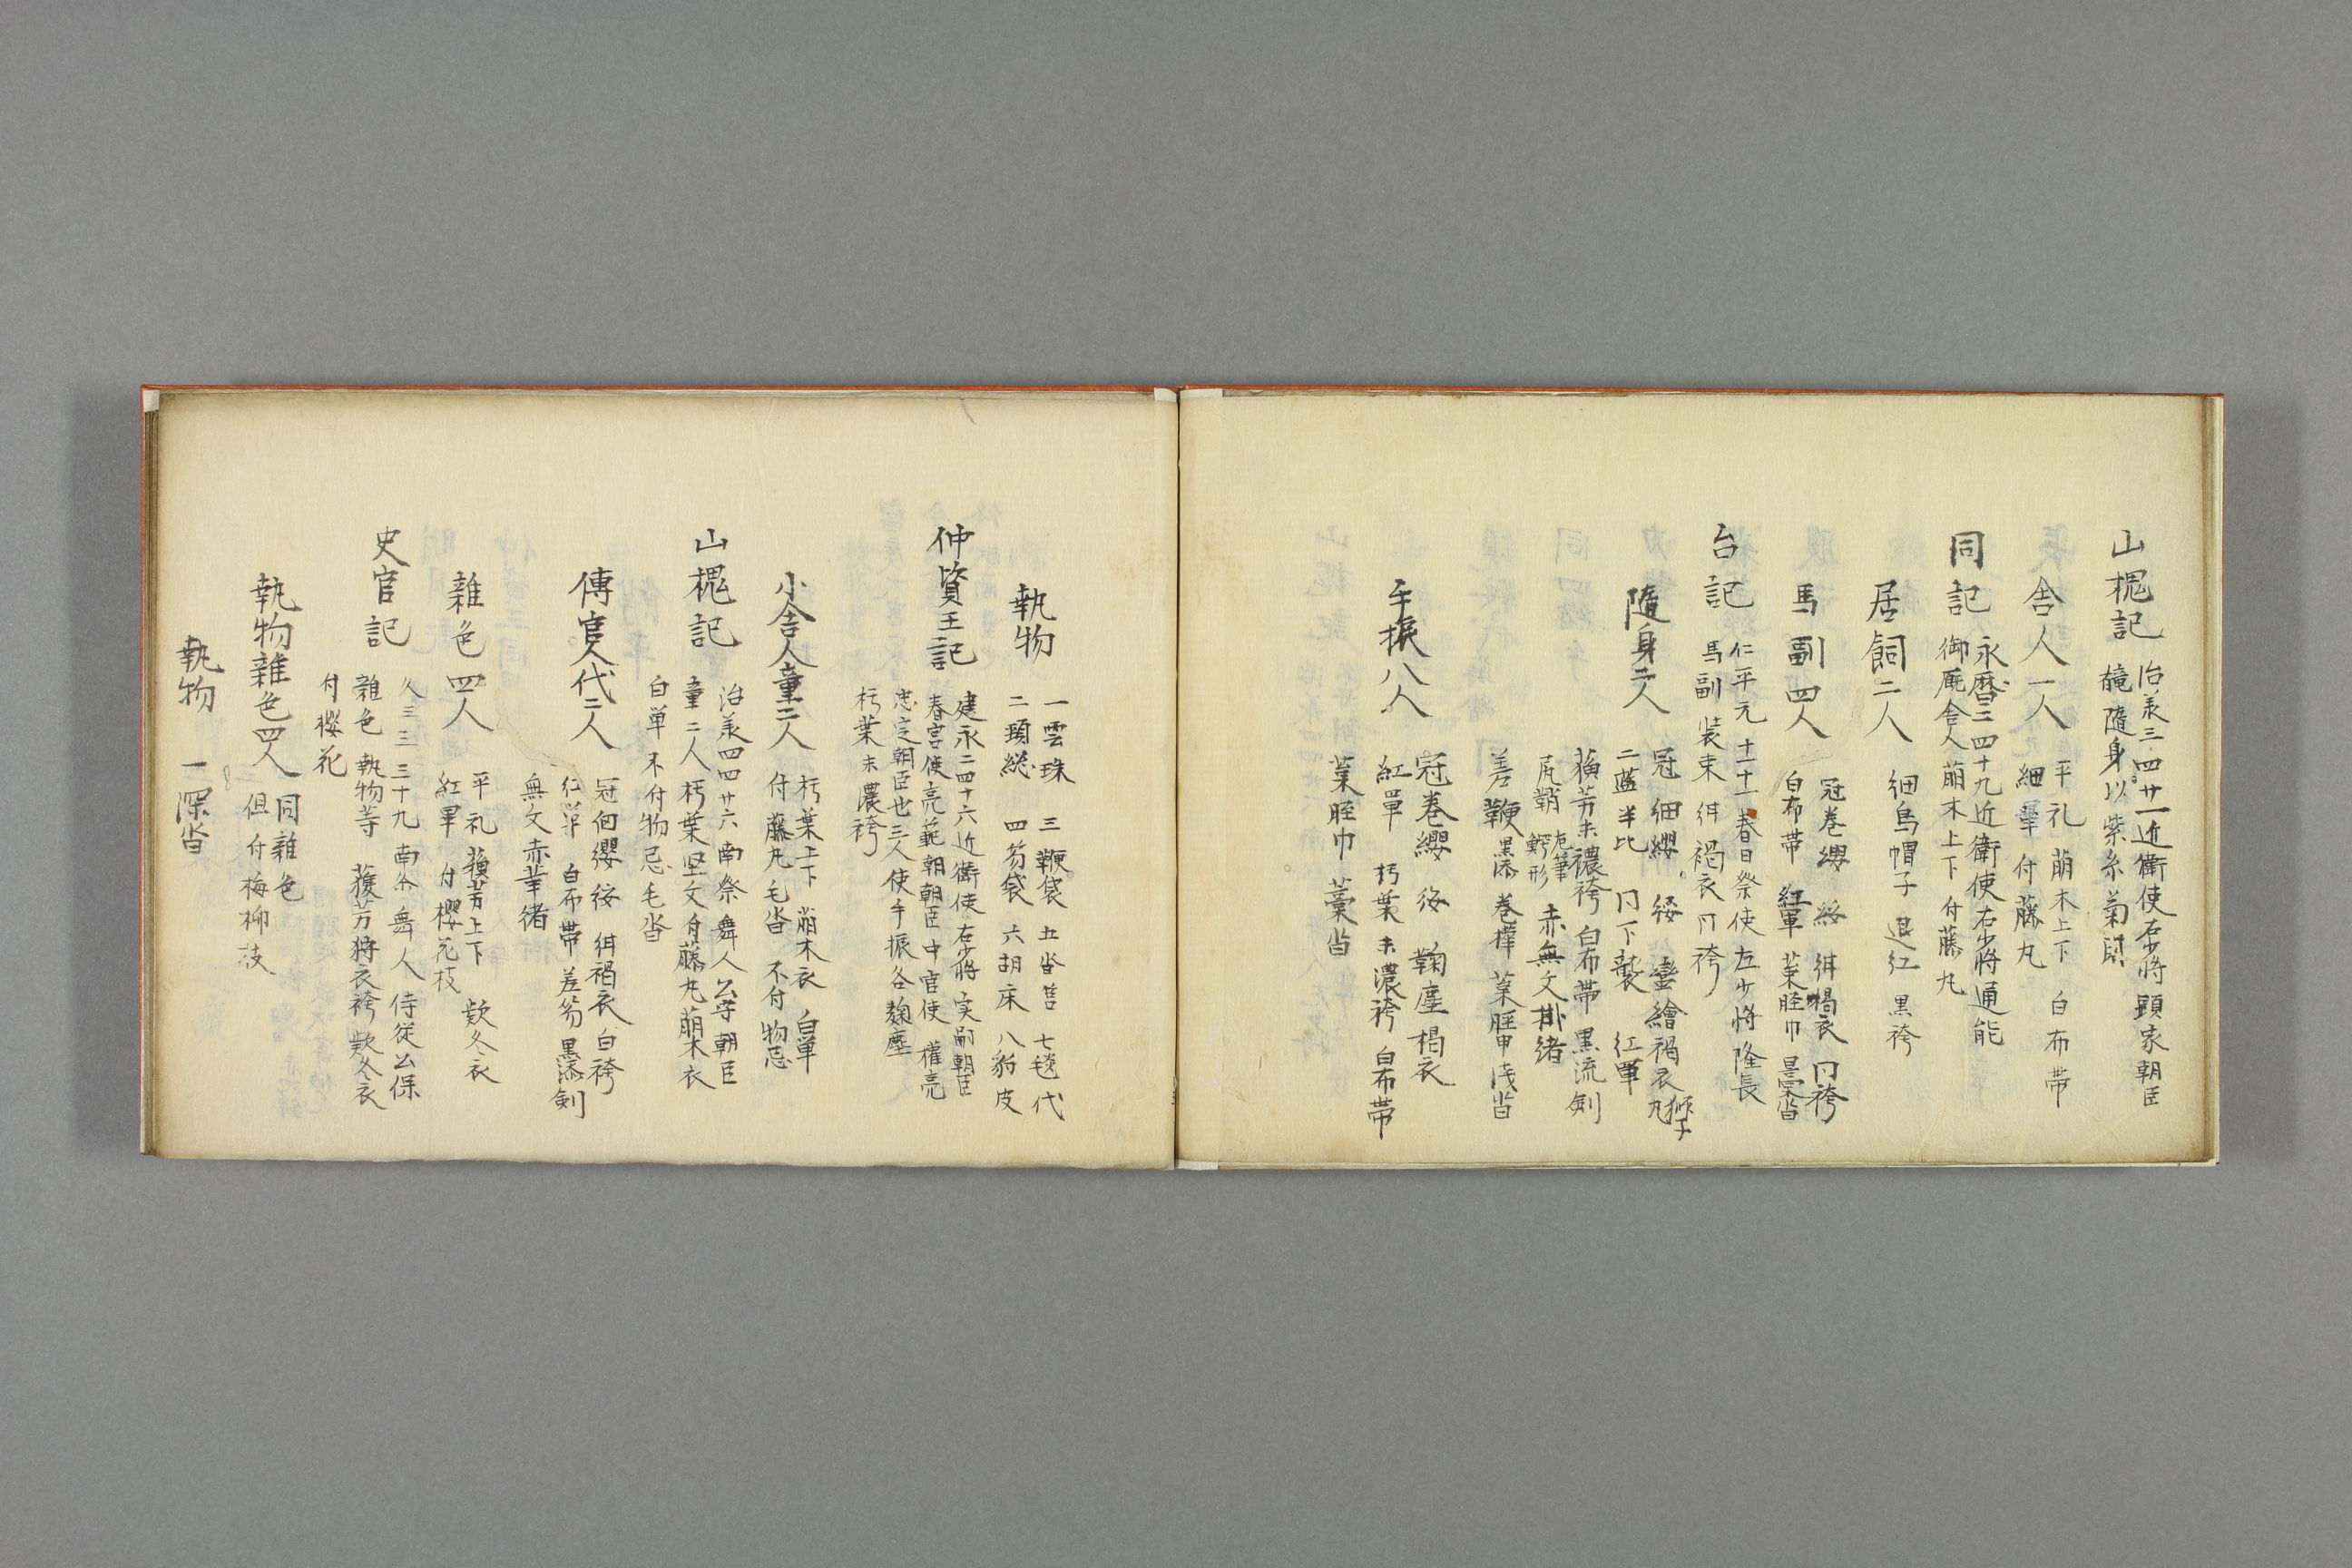 山槐記
治承三四廿一近衛使右少将顕家朝臣
随身以紫糸菊閇
舎人一人
平礼 萌木上下 白布帯
細單 付藤丸
同記
永暦三四十九近衛使右少将通能
御厩舎人萌木上下 付藤丸
居飼二人
細烏帽子 退紅 黒袴
馬副四人
冠巻纓 緌 褐衣 冂袴
白布帯 紅單 葉脛巾
台記
仁平元 十一十一 春日祭使左少将隆長
馬副装束 褐衣冂袴
随身二人
冠 細纓 緌 蠻繪褐衣 獅子丸
二藍半比 冂下襲 紅單
蘓芳末濃袴 白布帯 黒流剣
尻鞘 赤無文掛緒
差鞭 黒漆 巻樺 葉脛巾 浅沓
手振八人
冠巻纓 緌 麴塵褐衣
紅單 朽葉末濃袴 白布帯
葉脛巾 藁沓
執物
一雲珠 三鞭袋 五沓筥 七毯代
二頚総 四笏袋 六胡床 八豹皮
仲資王記
建永二四十六近衛使右少将実嗣朝臣
春宮使亮範朝朝臣 中宮使権亮
忠定朝臣也三人使手振各麴塵
朽葉末濃袴
小舎人童二人
朽葉上下 萌木衣 白単
付藤丸 毛沓 不付物忌
山槐記
治承四四廿六南祭舞人公守朝臣
童二人朽葉堅文付藤丸萌木衣
白単 不付物忌 毛沓
傳官人代二人
冠細纓 緌 褐衣 白袴
紅単 白布帯 差笏 黒漆剣
無文赤革緒
雜色四人
平礼 蘓芳上下 款冬衣
紅單 付櫻花枝
史官記
久三三三十九南祭舞人侍従公保
雜色執物等 蘓芳狩衣袴 款冬衣
付櫻花
執物雜色四人
同雜色
但付梅柳枝
執物
一深沓